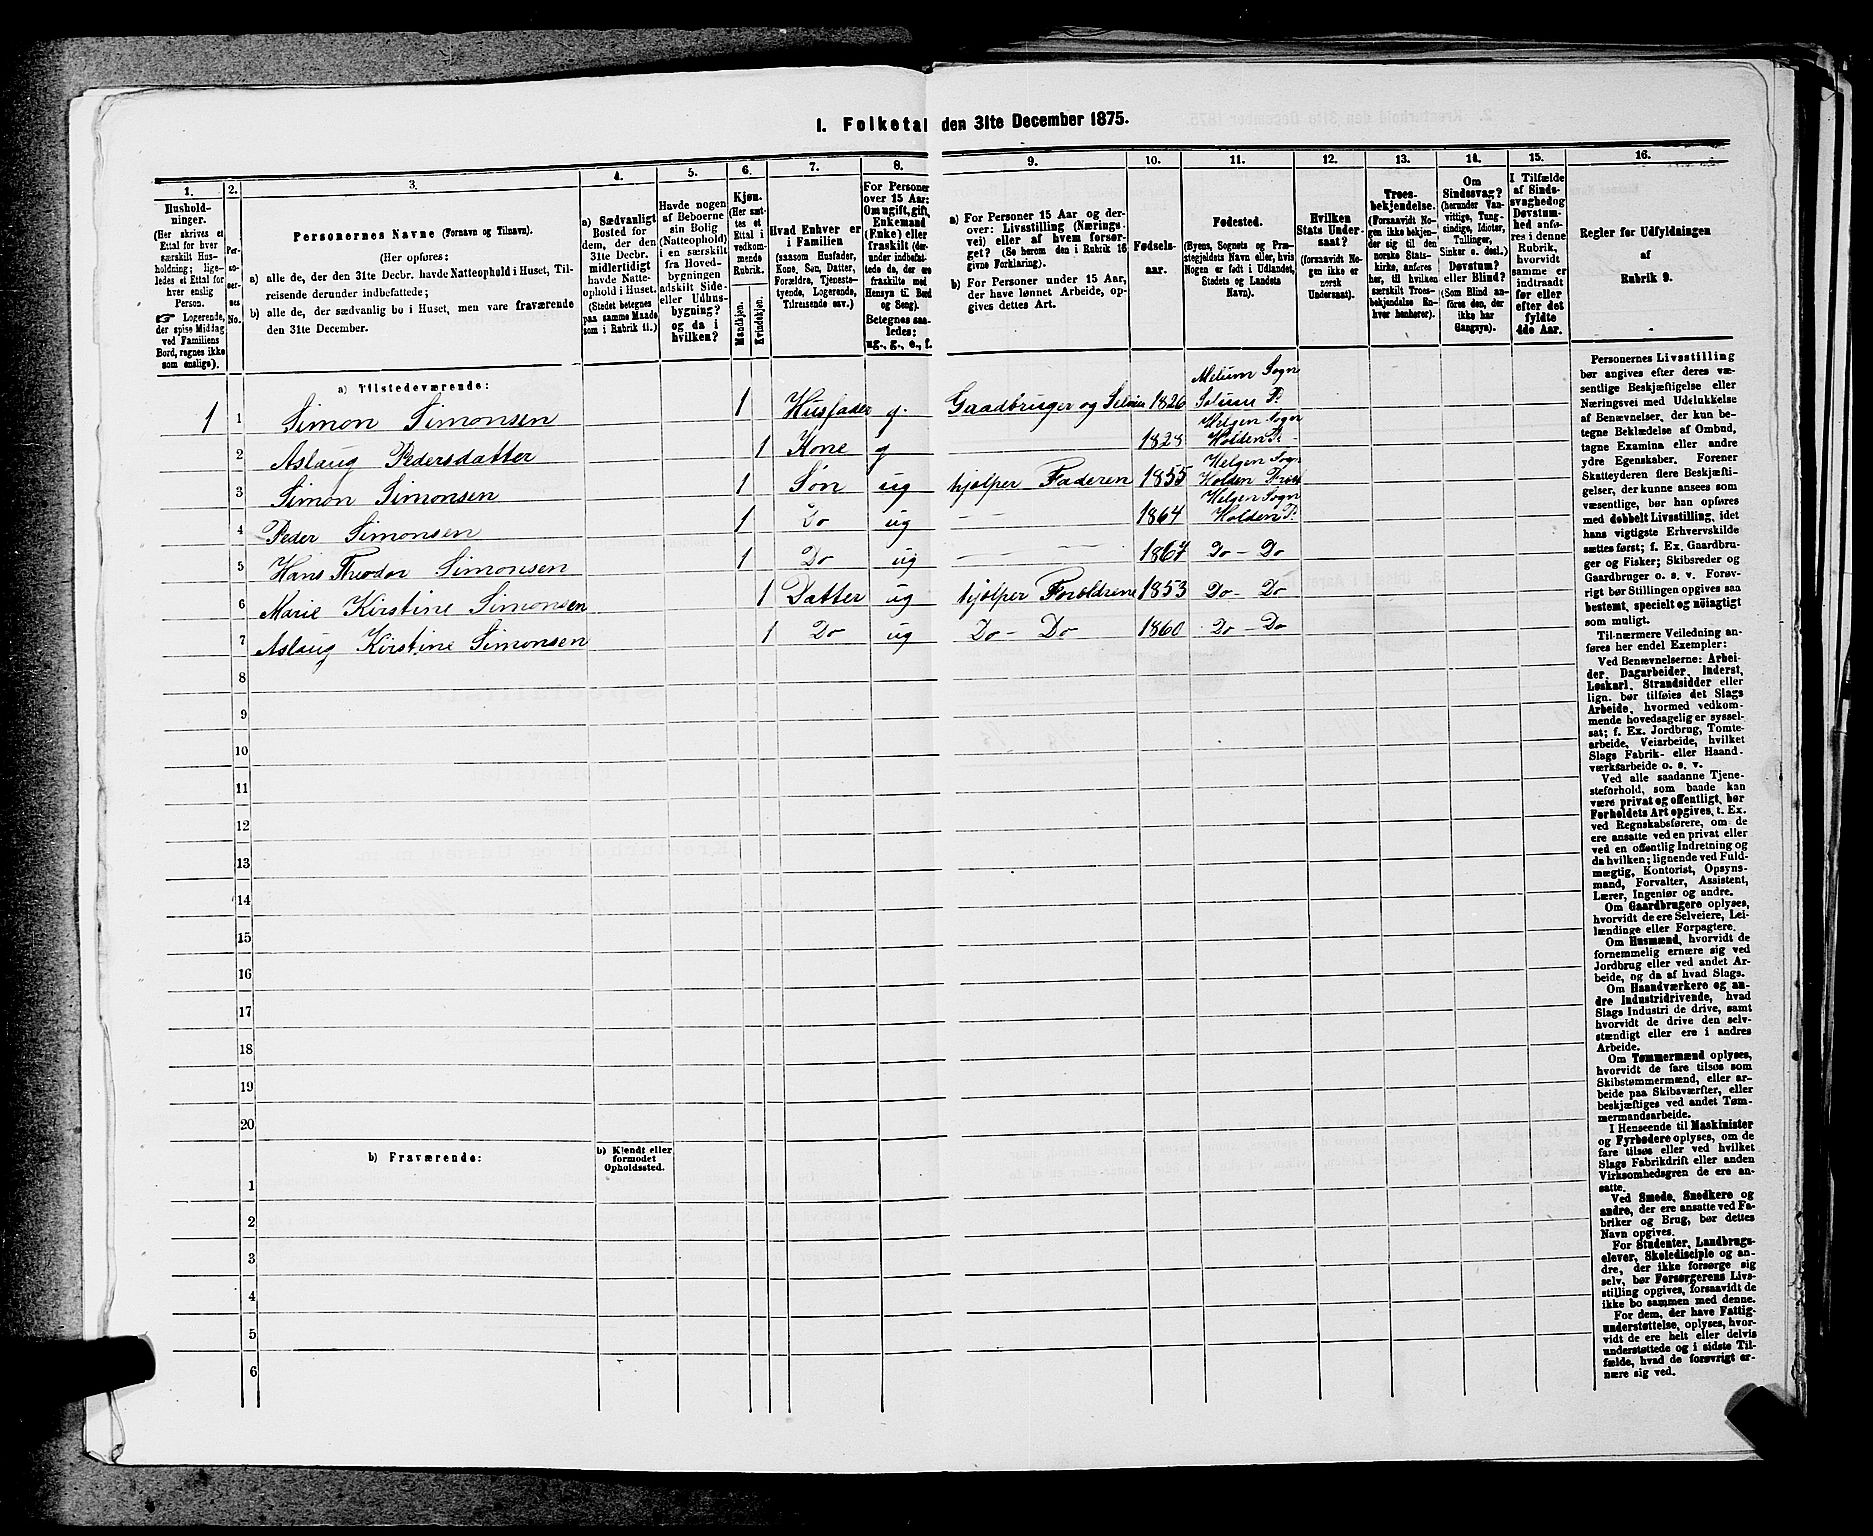 I. Folketal den 31te December 1875.
1. 2. 3. 4. 5. 6. 7. 8. 9. 10. 11. 12. 13. 14. 15. 16.
Husholdninger.
(Her skrives et Ettal for hver særskilt Husholdning; ligeledes et Ettal for hver enslig Person.
☞ Logerende, der spise Middag ved Familiens Bord, regnes ikke som enslige).
Personernes No.
Personernes Navne (Fornavn og Tilnavn).
(Her opføres:
a) alle de, der den 31te Decbr. havde Natteophold i Huset, Tilreisende derunder indbefattede;
b) alle de, der sædvanlig bo i Huset, men vare fraværende den 31te December.
a) Sædvanligt Bosted for dem, der den 31te Decbr. midlertidigt havde Natteophold i Huset. (Stedet betegnes paa samme Maade som i Rubrik 11.)
Havde nogen af Beboerne sin Bolig (Natteophold) i en særskilt fra Hovedbygningen adskilt Side- eller Udhusbygning? og da i hvilken?
Kjøn. (Her sættes et Ettal i vedkommende Rubrik.
Mandkjøn. Kvindekjøn.
Hvad Enhver er i Familien
(saasom Husfader, Kone, Søn, Datter, Forældre, Tjenestetyende, Logerende, Tilreisende osv.)
For Personer over 15 Aar: Om ugift, gift, Enkemand (Enke) eller fraskilt (derunder indbefattede de, der ere fraskilte med Hensyn til Bord og Seng).
Betegnes saaledes: ug., g., e., f.
a) For Personer 15 Aar og derover: Livsstilling (Næringsvei) eller af hvem forsørget? (Se herom den i Rubrik 16 givne Forklaring).
b) For Personer under 15 Aar, der have lønnet Arbeide, opgives dettes Art.
Fødselsaar.
Fødested.
(Byens, Sognets og Præstegjeldets Navn eller, hvis Nogen er født i Udlandet, Stedets og Landets Navn).
Hvilken Stats Undersaat?
(forsaavidt Nogen ikke er norsk Undersaat).
Troesbekjendelse.
(Forsaavidt Nogen ikke bekjender sig til den norske Statskirke, anføres her, til hvilken særskilt Troesbekjendelse Enhver henhører).
Om Sindssvag? (herunder Vanvittige, Tungsindige, Idioter, Tullinger, Sinker o. desl.). Døvstum? eller Blind? (Som Blind anføres den, der ikke har Gangsyn).
I Tilfælde af Sindssvaghed og Døvstumhed anføres i denne Rubrik, hvorvidt samme er indtraadt før eller efter det fyldte 4de Aar.
Regler for Udfyldningen af Rubrik 9.
a) Tilstedeværende:
1 1 Simon Simonsen 1 Husfader g. Gaadbruger og Selveier 1826 Melum Sogn Solum P.
2 Aslaug Pedersdatter 1 Kone g 1828 Helgen Sogn Holden P.
3 Simon Simonsen 1 Søn ug hjelper Faderen 1855 Helgen Sogn Holden
4 Peder Simonsen 1 Do ug — — 1864 Helgen Sogn Holden P.
5 Hans Theodor Simonsen 1 Do ug — — — 1867 Do — Do
6 Marie Kirstine Simonsen 1 Datter ug hjelper Foreldrene 1853 Do — Do
7 Aslaug Kirstine Simonsen 1 Do ug Do — Do 1860 Do — Do
8
9
10
11
12
13
14
15
16
17
18
19
20
b) Fraværende:
b) Kjendt eller formodet Opholdssted.
1
2
3
4
5
6
Personernes Livsstilling
bør angives efter deres væ-
sentlige Beskjæftigelse eller
Næringsvei med Udelukkelse
af Benævnelser, der kun be-
tegne Beklædelse af Ombud,
tagne Examina eller andre
ydre Egenskaber. Forener
Skatteyderen flere Beskjæfti-
gelser, der kunne ansees som
væsentlige, bør han opføres
med dobbelt Livsstilling, idet
hans vigtigste Erhvervskilde
sættes først; f. Ex. Gaardbru-
ger og Fisker; Skibsreder og
Gaardbruger o. s. v. Forøv-
rigt bør Stillingen opgives saa
bestemt, specielt og nøiagtigt
som muligt.
Til nærmere Veiledning an-
føres her endel Exempler:
Ved Benævnelserne: Arbei-
der, Dagarbeider, Inderst,
Løskarl, Strandsidder eller
lign. bør tilføies det Slags
Arbeide, hvormed vedkom-
mende hovedsagelig er syssel-
sat; f. Ex. Jordbrug, Tomte-
arbeide, Veiarbeide, hvilket
Slags Fabrik- eller Haand-
værksarbeide o. s. v.
Ved alle saadanne Tjene-
steforhold, som baade kan
være privat og offentligt, bør
Forholdets Art opgives, t. Ex.
ved Regnskabsførere, om de
ere ansatte ved en privat eller
ved en offentlig Indretning og
da hvilken; lignende ved Fuld-
mægtig, Kontorist, Opsyns-
mand, Forvalter, Assistent,
Lærer, Ingeniør og andre.
Om Gaardbrugere oplyses,
hvorvidt de ere Selveiere, Lei-
lændinge eller Forpagtere.
Om Husmænd, hvorvidt de
fornemmelig ernære sig ved
Jordbrug eller ved andet Ar-
beide, og da af hvad Slags.
Om Haandværkere og an-
dre Industridrivende, hvad
Slags Industri de drive, samt
hvorvidt de drive den selv-
stændigt eller ere i andres
Arbeide.
Om Tømmermænd oplyses,
hvorvidt de fare tilsøs som
Skibstømmermænd, eller ar-
beide paa Skibsværfter, eller
beskjæftiges ved andet Tøm-
mermandsarbeide.
I Henseende til Maskinister
og Fyrbødere oplyses, om de
fare tilsøs eller ved hvilket
Slags Fabrikdrift eller anden
Virksomhedsgren de ere an-
satte.
Ved Smede, Snedkere og
andre, der ere ansatte ved Fa-
briker og Brug, bør dettes
Navn opgives.
For Studenter, Landbrugs-
elever, Skoledisciple og an-
dre, der ikke forsørge sig
selv, bør Forsørgerens Livs-
stilling opgives, forsaavidt de
ikke bo sammen med denne.
For dem, der have Fattig-
understøttelse, oplyses, hvor-
vidt de ere helt eller delvis
understøttede og i sidste Til-
fælde, hvad de forøvrigt er-
nære sig ved.